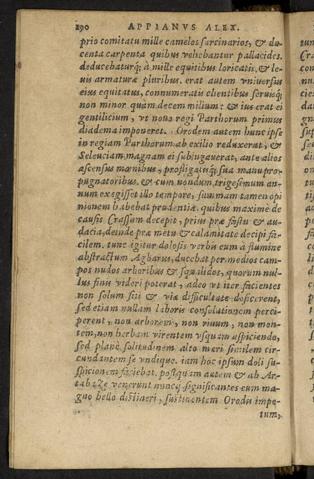 290 APPIANVS ALEX.
prio comitatu mille camelos sarcinarios, & du-
centa carpenta quibus vehebantur pallacides.
deducebaturq; à mille equitibus loricatis, & le-
uis armaturæ pluribus. erat autem vniuersus
eius equitatus, connumeratis clientibus seruisq;
non minor quàm decem milium: & ius erat ei
gentilicium, vt nouo regi Parthorum primus
diadema imponeret. Orodem autem hunc ipse
in regiam Parthorum ab exilio reduxerat, &
Seleuciam magnam ei subiugauerat, ante alios
ascensus mœnibus, profligatisq; sua manu pro-
pugnatoribus. & cum nondum trigesimum an-
num exegisset illo tempore, summam tamen opi
nionem habebat prudentiæ. quibus maximè de
causis Crassum decepit, primò præ fastu & au-
dacia, deinde præ metu & calamitate decipi fa-
cilem. tunc igitur dolosis verbis eum à flumine
abstractum Agbarus, ducebat per medios cam-
pos nudos arboribus & squalidos, quorum nul-
lus finis videri poterat, adeo vt iter facientes
non solum siti & viæ difficultate deficerent,
sed etiam nullam laboris consolationem perci-
perent, non arborem, non riuum, non mon-
tem, non herbam virentem vsquam aspiciendo,
sed planè solitudinem alto mari similem cir-
cundantem se vndique. iam hoc ipsum doli su-
spicionem faciebat. postquam autem & ab Ar-
tabaze venerunt nuncij significantes eum ma-
gno bello distineri, sustinentem Orodis impe-
tum,